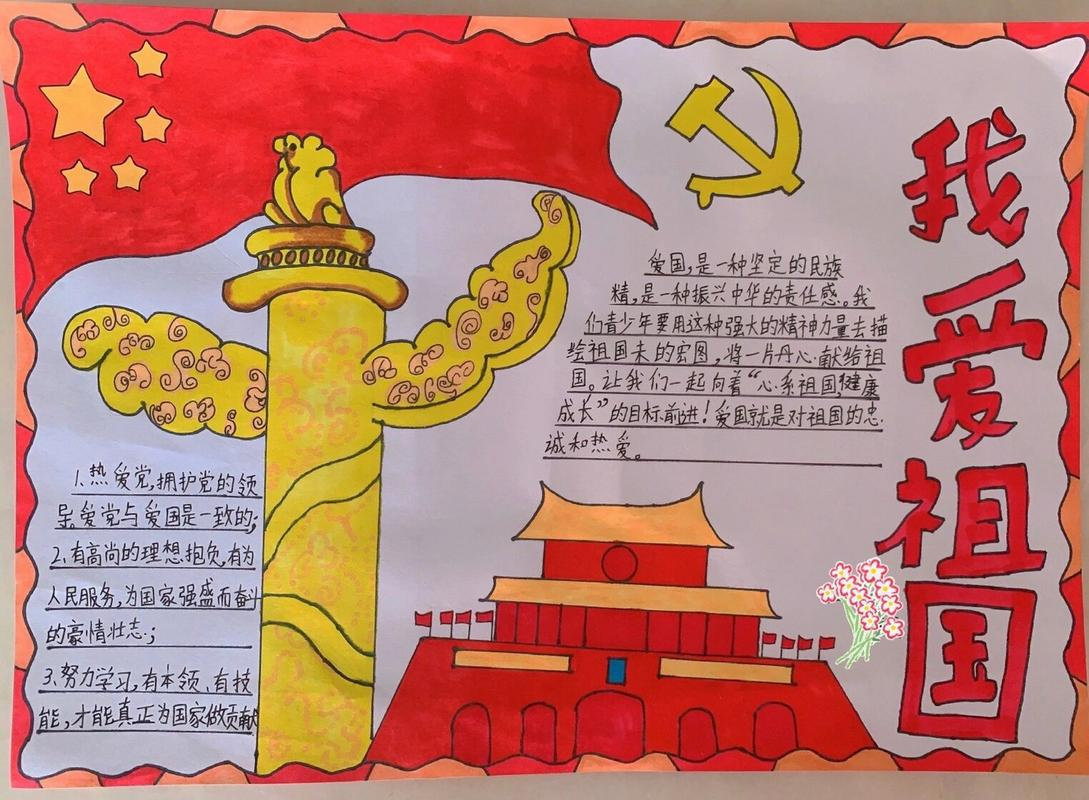 我爱祖国
爱国,是一种坚定的民族
精,是一种振兴中华的责任感。我
们青少年要用这种强大的精神力量去描
绘祖国未的宏图,将一片丹心献给祖
国。让我们一起向着“心系祖国,健康
成长”的目标前进!爱国就是对祖国的忠
诚和热爱。
1、热爱党,拥护党的领
导。爱党与爱国是一致的;
2、有高尚的理想抱负,有为
人民服务,为国家强盛而奋斗
的豪情壮志;
3、努力学习,有本领、有技
能,才能真正为国家做贡献